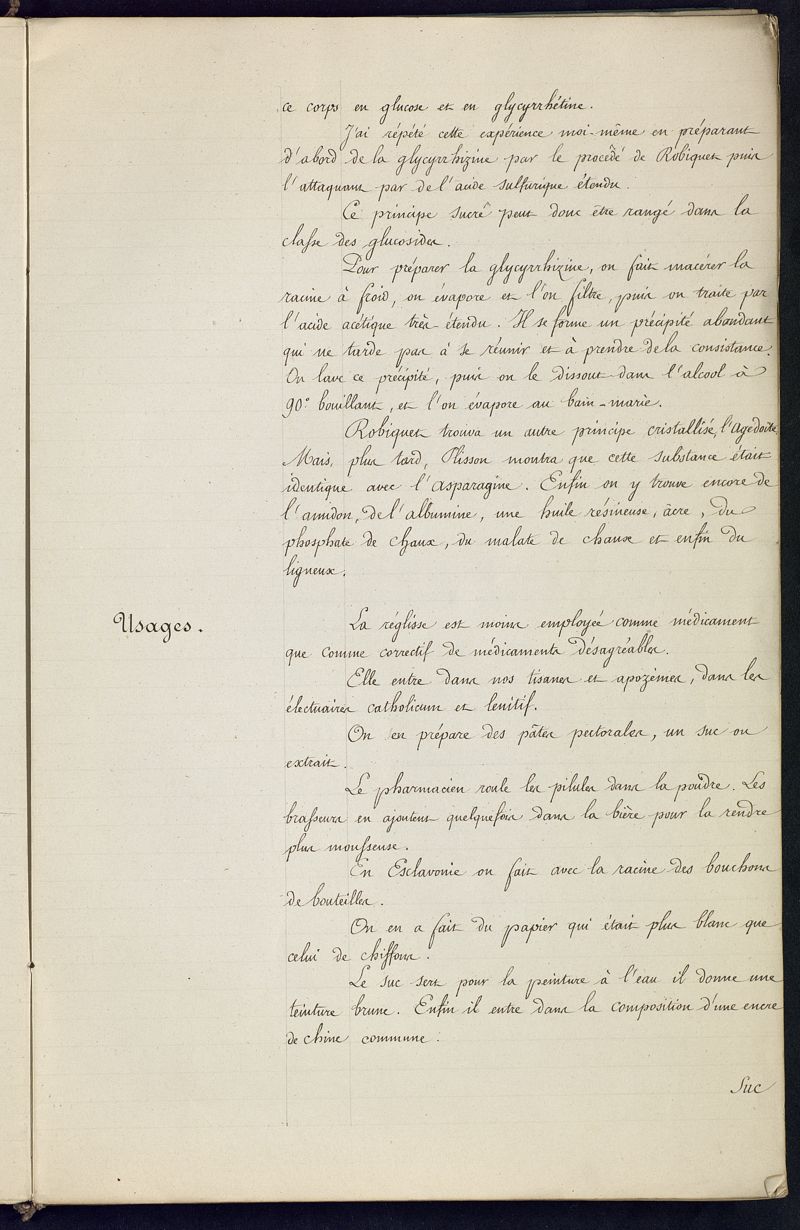 ce corps en glucose et en glycyrrhétine.
J'ai répété cette expérience moi-même en préparant
d'abord de la glycyrrhizine par le procédé de Robiquet puis
l'attaquant par de l'acide sulfurique étendu.
Ce principe sucré peut donc être rangé dans la
classe des glucosides.
Pour préparer la glycyrrhizine, on fait macérer la
racine à froid, on évapore et l'on filtre, puis on traite par
l'acide acétique très étendu. Il se forme un précipité abondant
qui ne tarde pas à se réunir et à prendre de la consistance.
On lave ce précipité, puis on le dissout dans l'alcool à
90° bouillant, et l'on évapore au bain-marie.
Robiquet trouva un autre principe cristallisé, l'Agedoïte.
Mais, plus tard, Plisson montra que cette substance était
identique avec l'asparagine. Enfin on y trouve encore de
l'amidon, de l'albumine, une huile résineuse, âcre, du
phosphate de chaux, du malate de chaux et enfin du
ligneux.
Usages.
La réglisse est moins employée comme médicament
que comme correctif de médicaments désagréables.
Elle entre dans nos tisanes et apozèmes, dans les
électuaires catholicum et lenitif.
On en prépare des pâtes pectorales, un suc ou
extrait.
Le pharmacien roule les pilules dans la poudre. Les
brasseurs en ajoutent quelquefois dans la bière pour la rendre
plus mousseuse.
En Esclavonie on fait avec la racine des bouchons
de bouteilles.
On en a fait du papier qui était plus blanc que
celui de chiffons.
Le suc sert pour la peinture à l'eau il donne une
teinture brune. Enfin il entre dans la composition d'une encre
de chine commune.
Suc